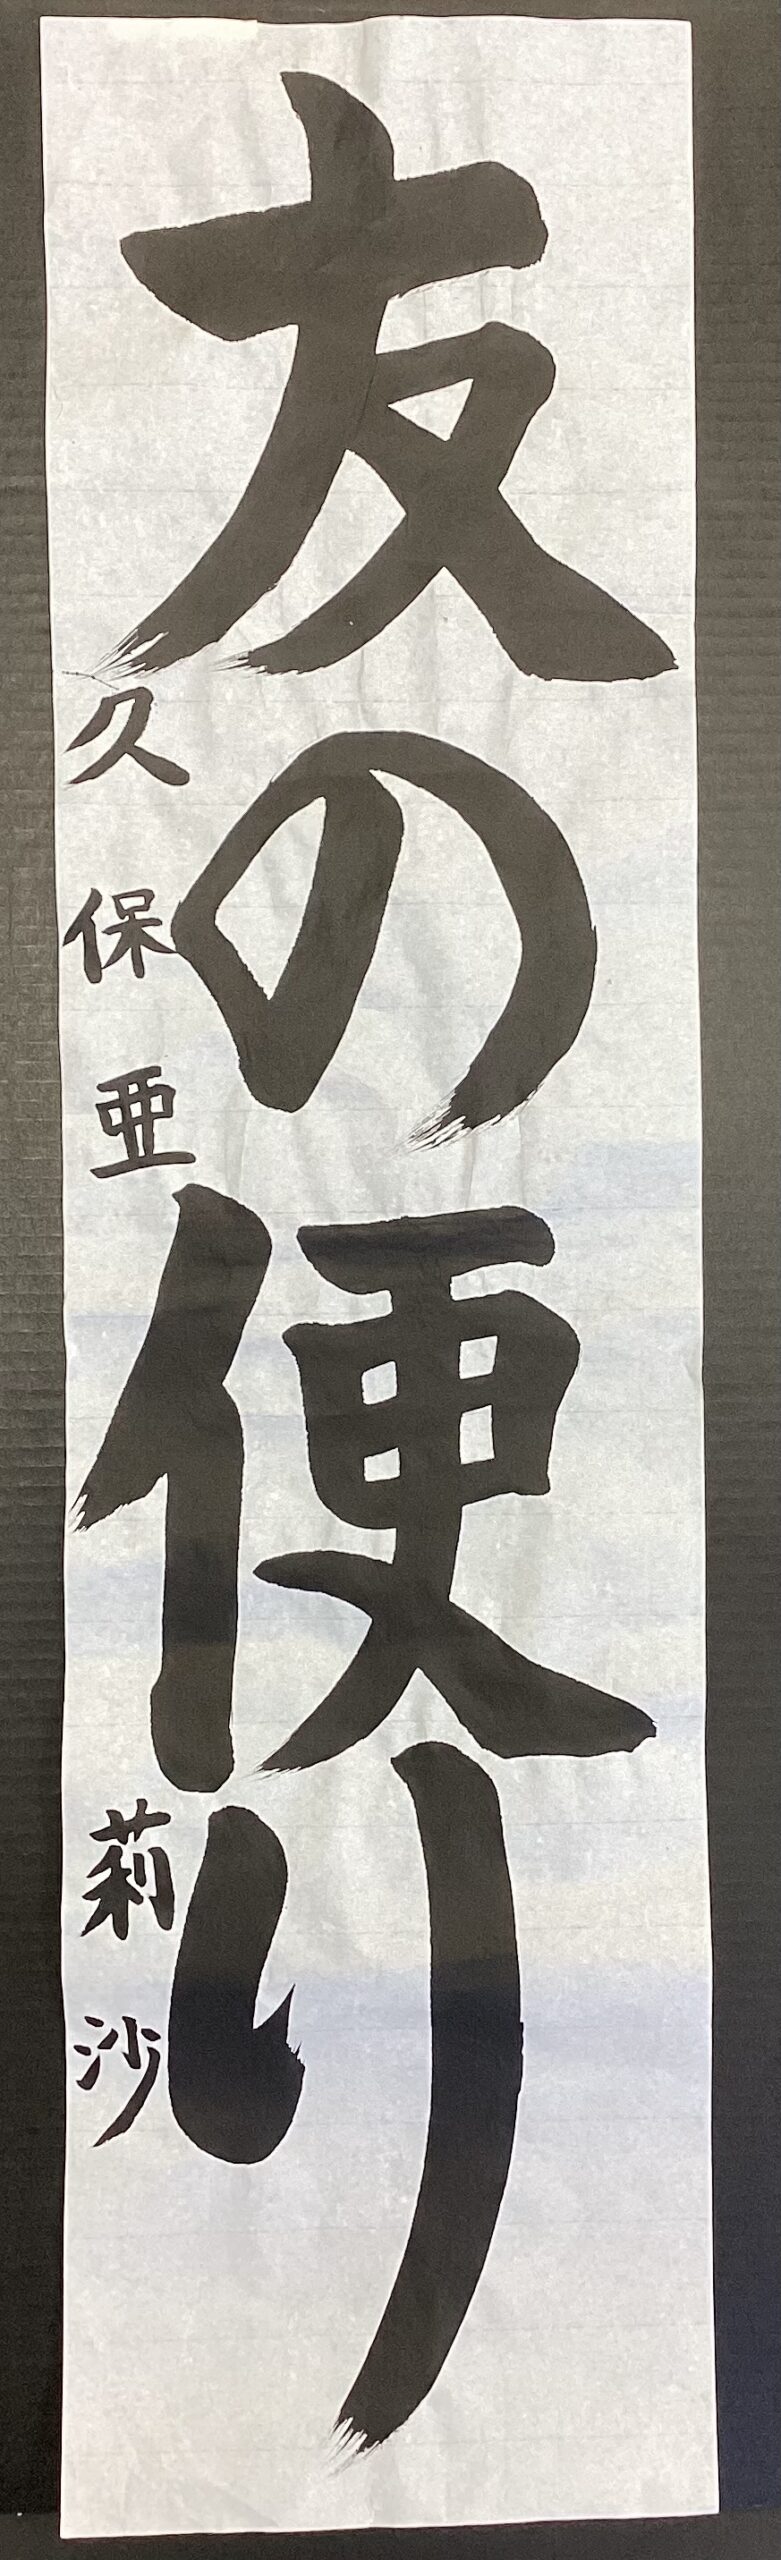 友の便り
久保亜莉沙